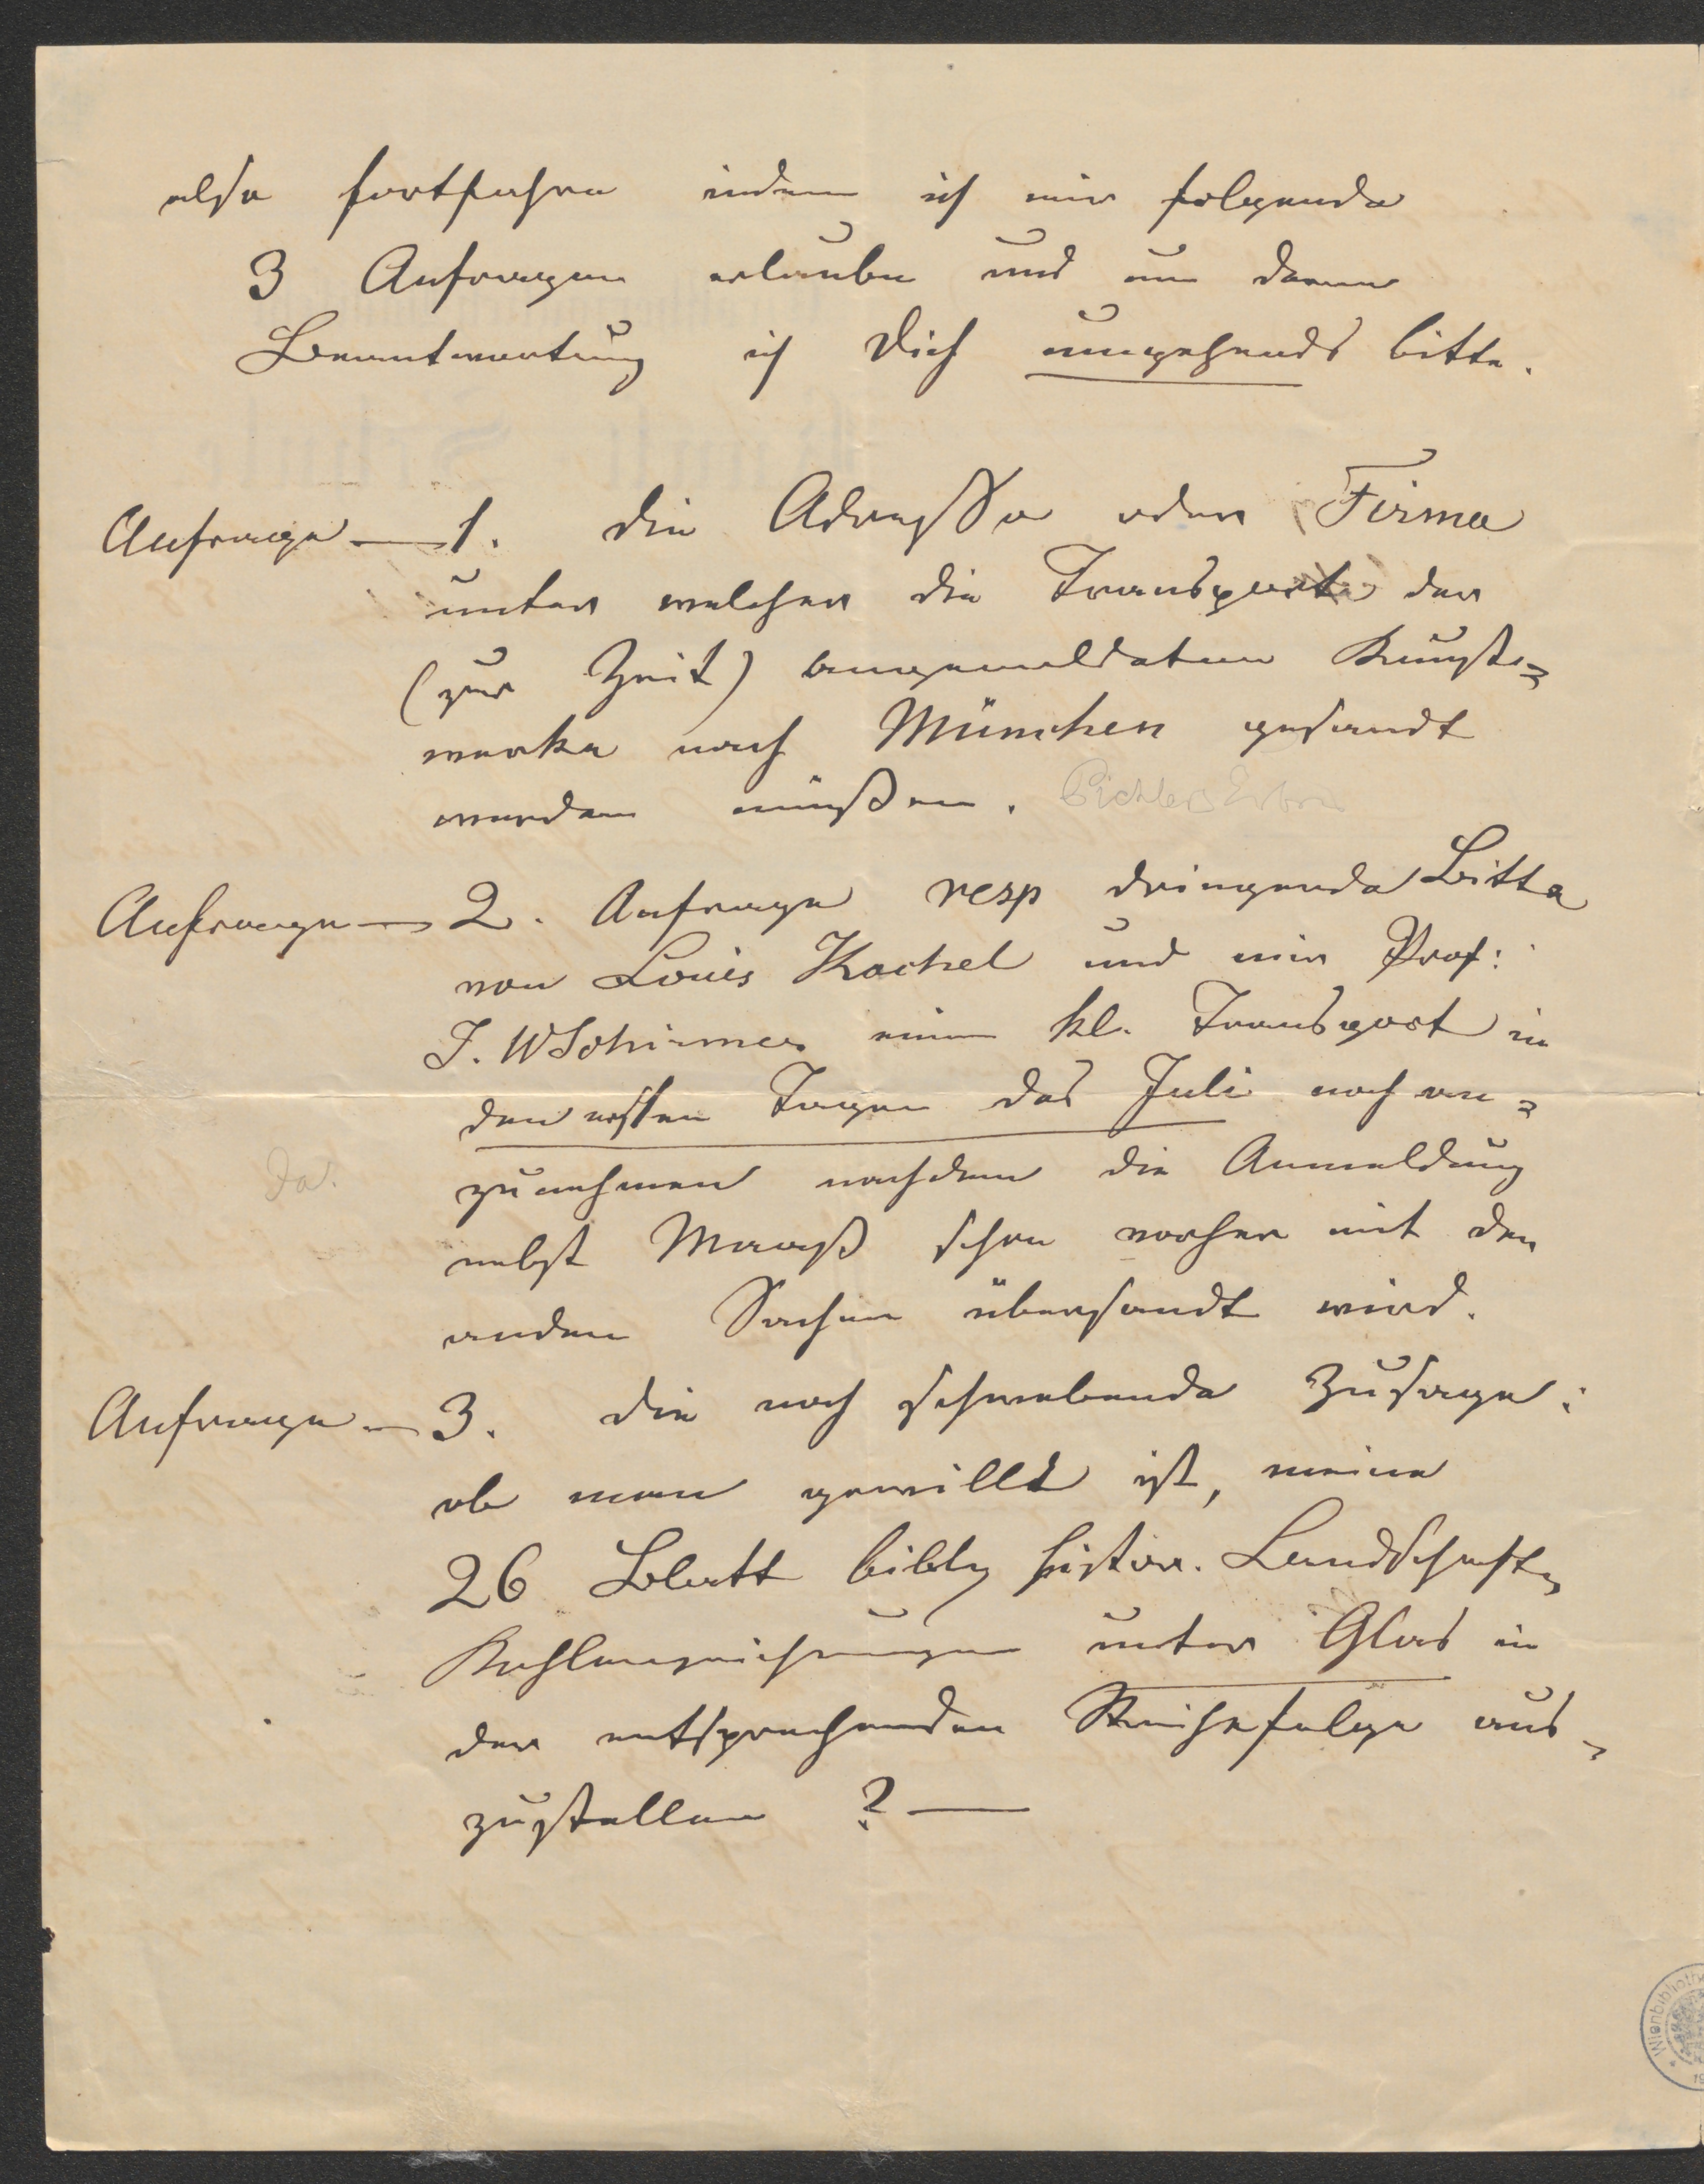 also fortfahre indem ich mir folgende
3 Anfragen erlaube und um deren
Beantwortung ich Dich umgehends bitte.
Anfrage — 1. die Adresse oder Firma
unter welcher die Transporte der
(zur Zeit) angemeldeten Kunst=
werke nach München gesandt
werden müßen. Pichlers Erben
Anfrage — 2. Anfrage resp dringende Bitte
von Louis Kachel und mir Prof:
J. W Schirmer einen kl. Transport in
den ersten Tagen des Juli noch an=
zunehmen nachdem die Anmeldung
Ja.
nebst Maaß schon vorher mit den
andern Sachen übersandt wird.
Anfrage — 3. die noch schwebende Zusage:
ob man gewillt ist, meine
26 Blatt bibl. histor. Landschafts
Kohlenzeichnungen unter Glas in
der entsprechenden Reihefolge aus=
zustellen ? —
Wienbibliothek